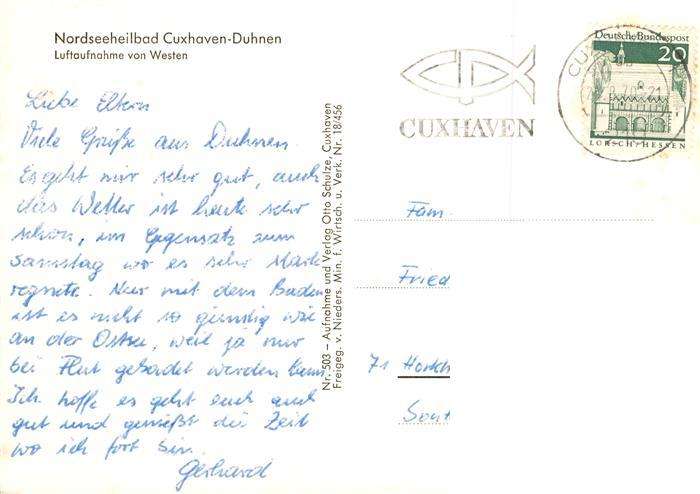 Nordseeheilbad Cuxhaven-Duhnen
Luftaufnahme von Westen
Liebe Eltern
Viele Grüße aus Duhnen.
Es geht mir sehr gut, auch
das Wetter ist heute sehr
schön, im Gegensatz zum
Samstag wo es sehr stark
regnete. Nur mit dem Baden
ist es nicht so günstig wie
an der Ostsee, weil ja nur
bei Flut gebadet werden kann
Ich hoffe es geht euch auch
gut und genießt die Zeit
wo ich fort bin.
Gerhard
Nr. 503 – Aufnahme und Verlag Otto Schulze, Cuxhaven
Freigeg. v. Nieders. Min. f. Wirtsch. u. Verk. Nr. 18/456
CUXHAVEN
Deutsche Bundespost
20
LORSCH/HESSEN
Fam.
Fried
71